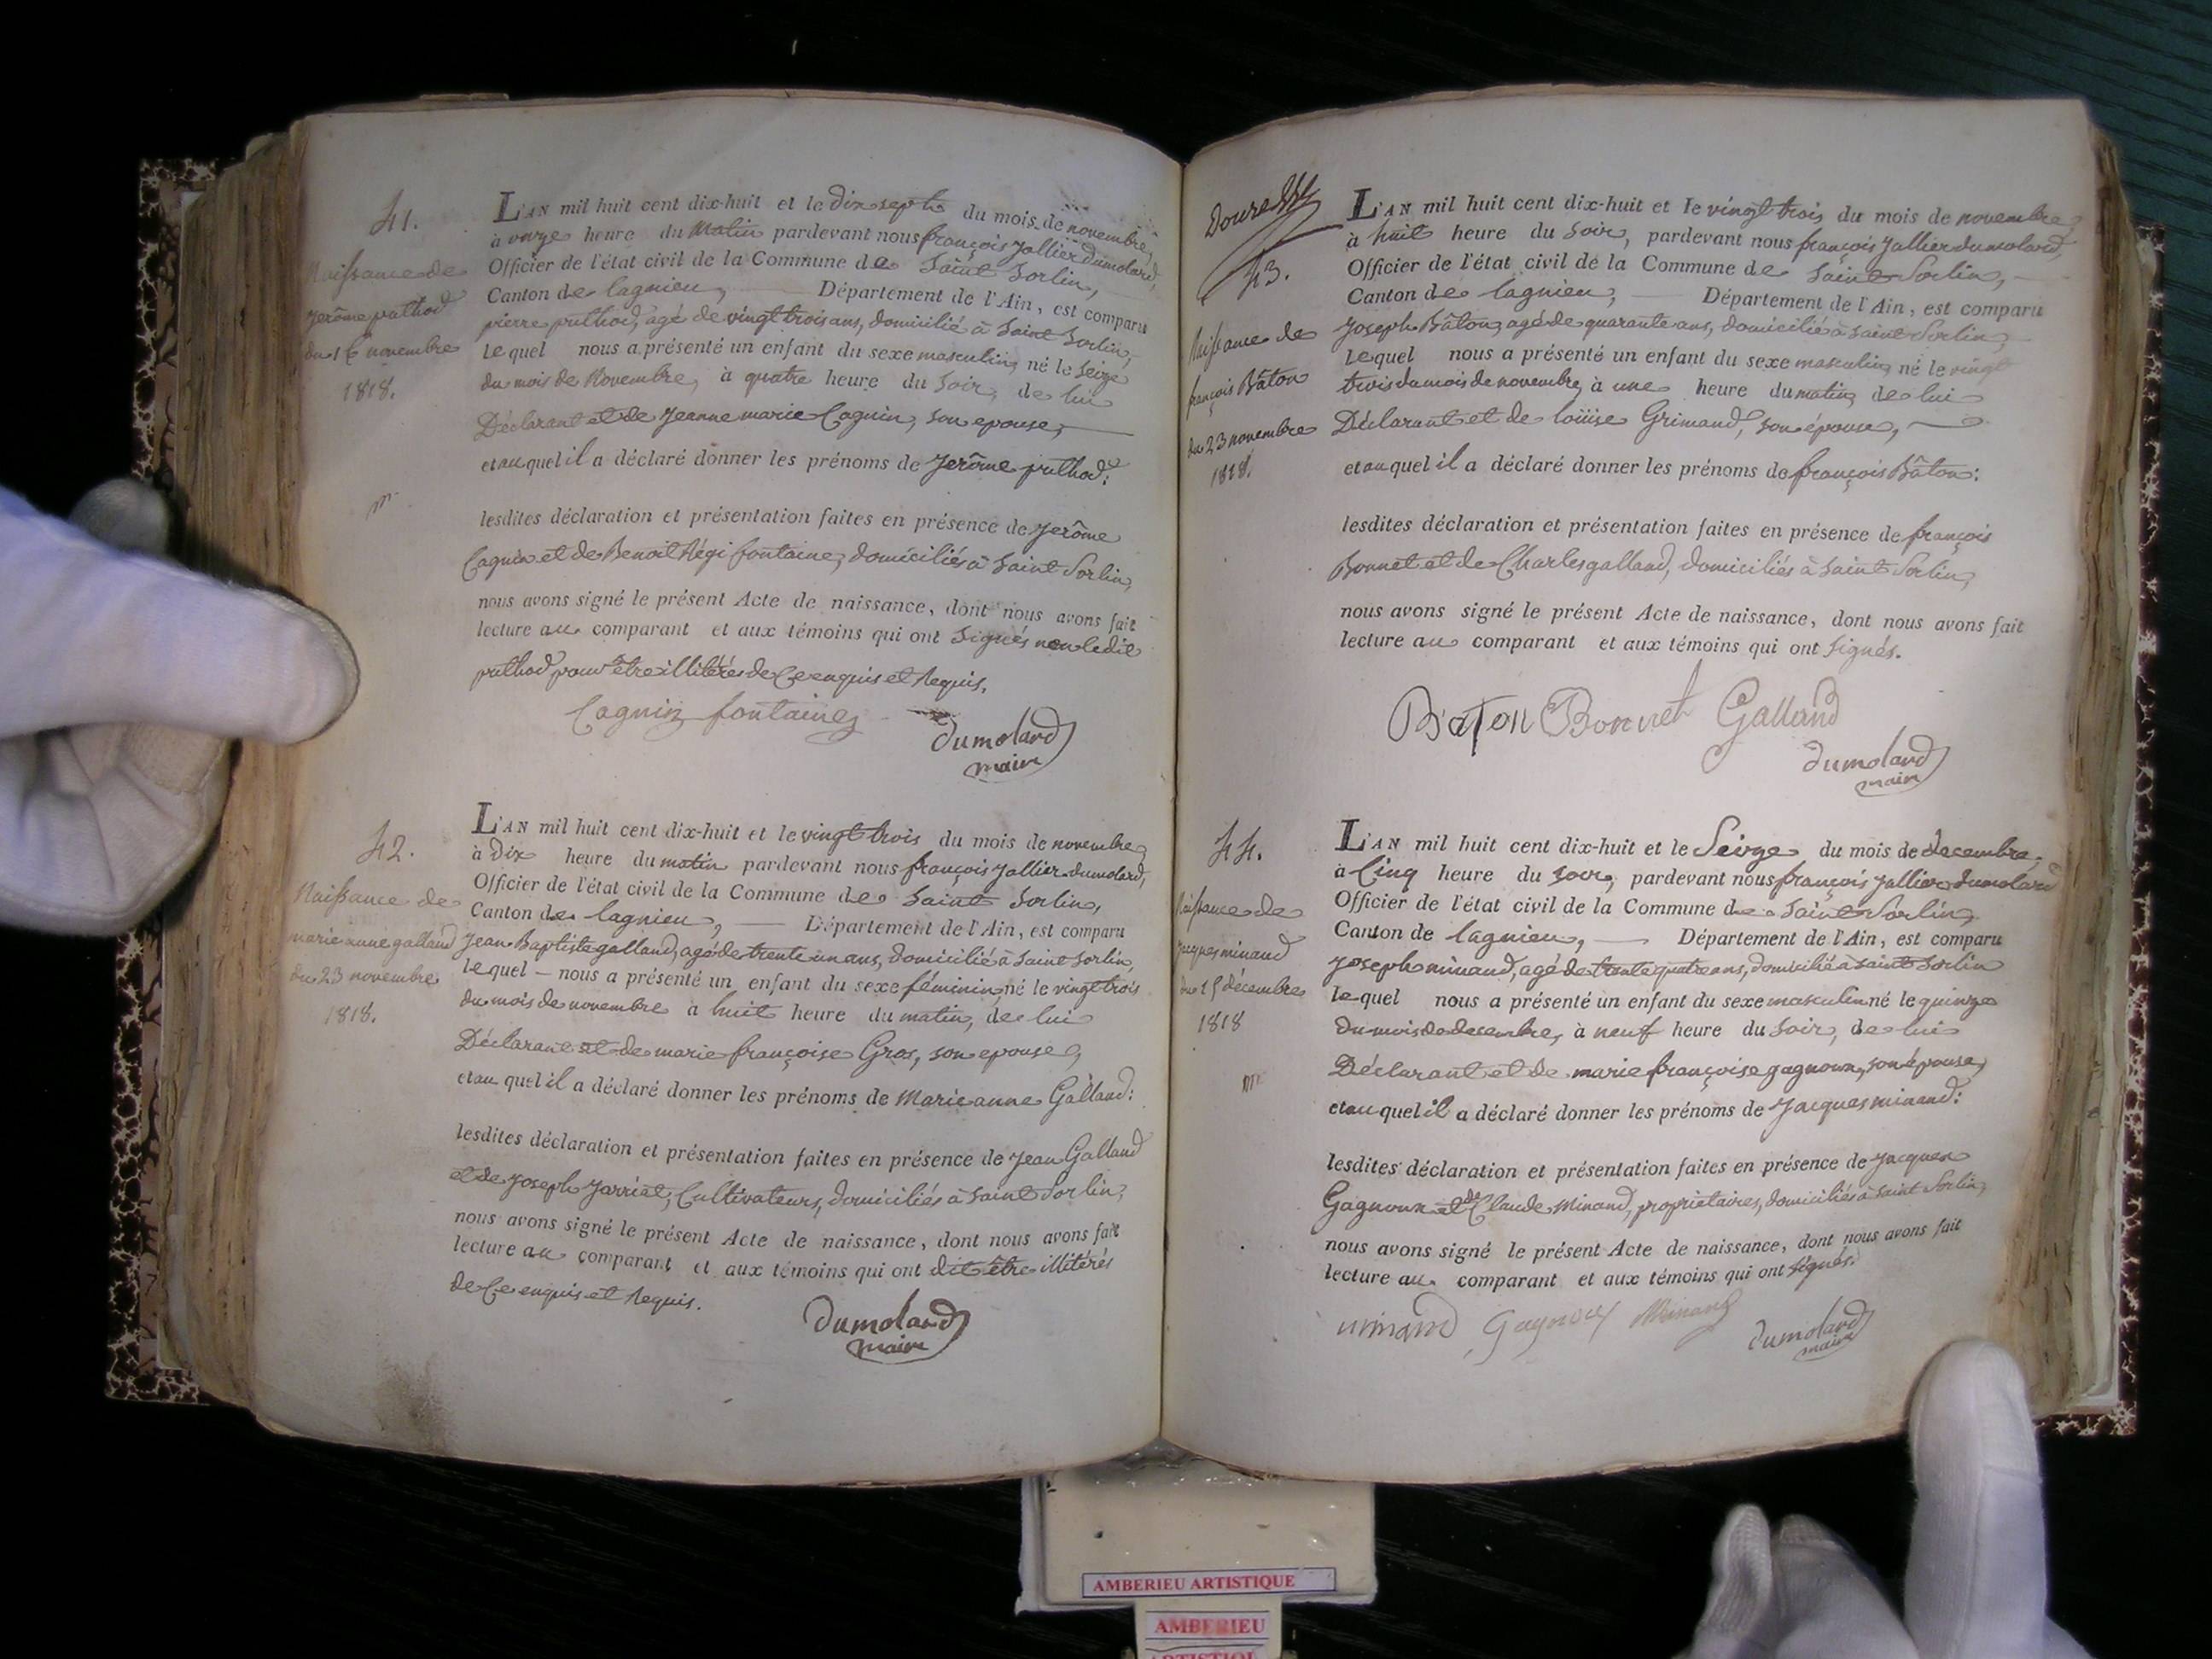 41.
Naissance de
jerôme puthod
du 16 novembre
1818.
m
L'AN mil huit cent dix-huit et le dix sept du mois de novembre,
à onze heure du matin pardevant nous françois jallier dumolard,
Officier de l'état civil de la Commune de Saint Sorlin,
Canton de lagnieu, Département de l'Ain, est comparu
pierre puthod, agé de vingt trois ans, domicilié à Saint Sorlin,
Lequel nous a présenté un enfant du sexe masculin, né le seize
du mois de Novembre, à quatre heure du Soir, de lui
Déclarant et de jeanne marie Cagnin, son epouse,
et auquel il a déclaré donner les prénoms de jerôme puthod:
lesdites déclaration et présentation faites en présence de jerôme
Cagnin et de Benoit Régi fontaine, domiciliés à Saint Sorlin,
nous avons signé le présent Acte de naissance, dont nous avons fait
lecture au comparant et aux témoins qui ont signés non ledit
puthod pour être illitérés de Ce enquis et Requis.
Cagnin fontaine
Dumolard
maire
42.
Naissance de
marie anne galland
du 23 novembre
1818.
L'AN mil huit cent dix-huit et le vingt trois du mois de novembre,
à Dix heure du matin pardevant nous françois jallier dumolard,
Officier de l'état civil de la Commune de Saint Sorlin,
Canton de lagnieu, Département de l'Ain, est comparu
jean Baptiste galland, agé de trente un ans, domicilié à Saint Sorlin,
Lequel nous a présenté un enfant du sexe féminin, né le vingt trois
du mois de novembre à huit heure du matin, de lui
Déclarant et de marie françoise Gros, son epouse,
et au quel il a déclaré donner les prénoms de Marie anne Galland:
lesdites déclaration et présentation faites en présence de jean Galland
et de joseph jarriat, Cultivateurs, domiciliés à Saint Sorlin,
nous avons signé le présent Acte de naissance, dont nous avons fait
lecture au comparant et aux témoins qui ont dit être illitérés
de Ce enquis et Requis.
Dumolard
maire
43.
Naissance de
françois Bâton
du 23 novembre
1818.
L'AN mil huit cent dix-huit et le vingt trois du mois de novembre,
à huit heure du Soir, pardevant nous françois jallier dumolard,
Officier de l'état civil de la Commune de Saint Sorlin,
Canton de lagnieu, Département de l'Ain, est comparu
joseph Bâton, agé de quarante ans, domicilié à Saint Sorlin,
Lequel nous a présenté un enfant du sexe masculin, né le vingt
trois du mois de novembre, à une heure du matin, de lui
Déclarant et de loüise Grimand, son épouse,
et auquel il a déclaré donner les prénoms de françois Bâton:
lesdites déclaration et présentation faites en présence de françois
Bonnet et de Charles galland, domiciliés à Saint Sorlin,
nous avons signé le présent Acte de naissance, dont nous avons fait
lecture au comparant et aux témoins qui ont signés.
Baton Bonnet Galland
Dumolard
maire
44.
Naissance de
jacques minand
du 15 décembre
1818
m
L'AN mil huit cent dix-huit et le Seize du mois de decembre,
à Cinq heure du soir, pardevant nous françois jallier dumolard
Officier de l'état civil de la Commune de Saint Sorlin,
Canton de lagnieu, Département de l'Ain, est comparu
joseph minand, agé de trente quatre ans, domicilié à Saint Sorlin
Lequel nous a présenté un enfant du sexe masculin né le quinze
du mois de decembre, à neuf heure du Soir, de lui
Déclarant et de marie françoise gagnoux, son épouse,
et auquel il a déclaré donner les prénoms de jacques minand:
lesdites déclaration et présentation faites en présence de jacques
Gagnoux et de Claude Minand, propriétaires, domiciliés à Saint Sorlin,
nous avons signé le présent Acte de naissance, dont nous avons fait
lecture au comparant et aux témoins qui ont signés.
minand Gagnoux Minand
Dumolard
maire
AMBERIEU ARTISTIQUE
AMBERIEU
ARTISTIQUE